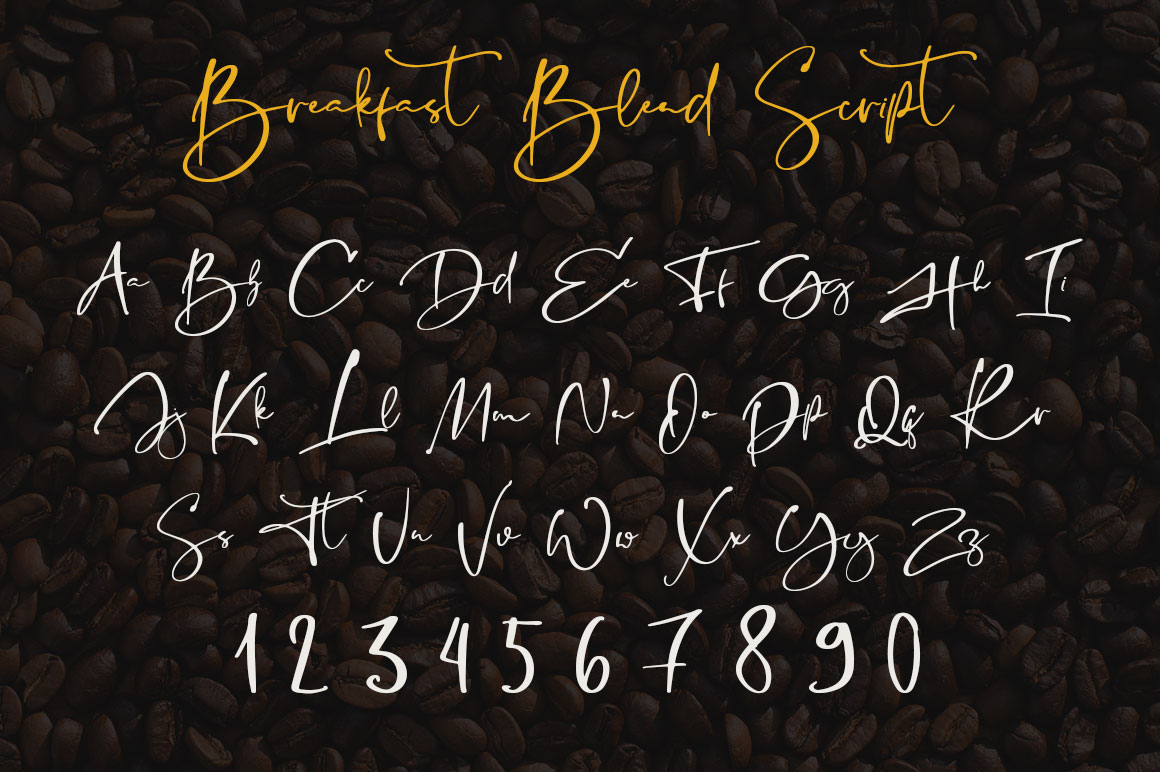 Breakfast Blend Script
Aa Bb Cc Dd Ee Ff Gg Hh Ii
Jj Kk Ll Mm Nn Oo Pp Qq Rr
Ss Tt Uu Vv Ww Xx Yy Zz
1 2 3 4 5 6 7 8 9 0